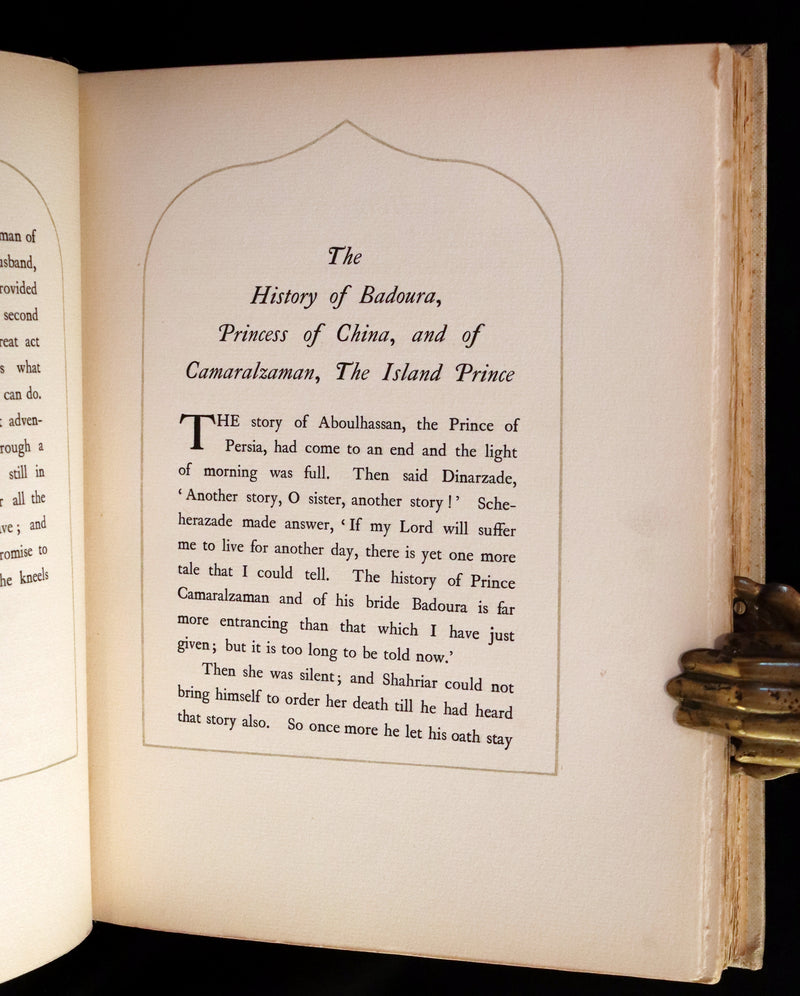 man of
usband,
rovided
second
reat act
s what
can do.
adven-
rough a
still in
all the
ve; and
romise to
he kneels
The
History of Badoura,
Princess of China, and of
Camaralzaman, The Island Prince
THE story of Aboulhassan, the Prince of
Persia, had come to an end and the light
of morning was full. Then said Dinarzade,
‘Another story, O sister, another story!’ Sche-
herazade made answer, ‘If my Lord will suffer
me to live for another day, there is yet one more
tale that I could tell. The history of Prince
Camaralzaman and of his bride Badoura is far
more entrancing than that which I have just
given; but it is too long to be told now.’
Then she was silent; and Shahriar could not
bring himself to order her death till he had heard
that story also. So once more he let his oath stay